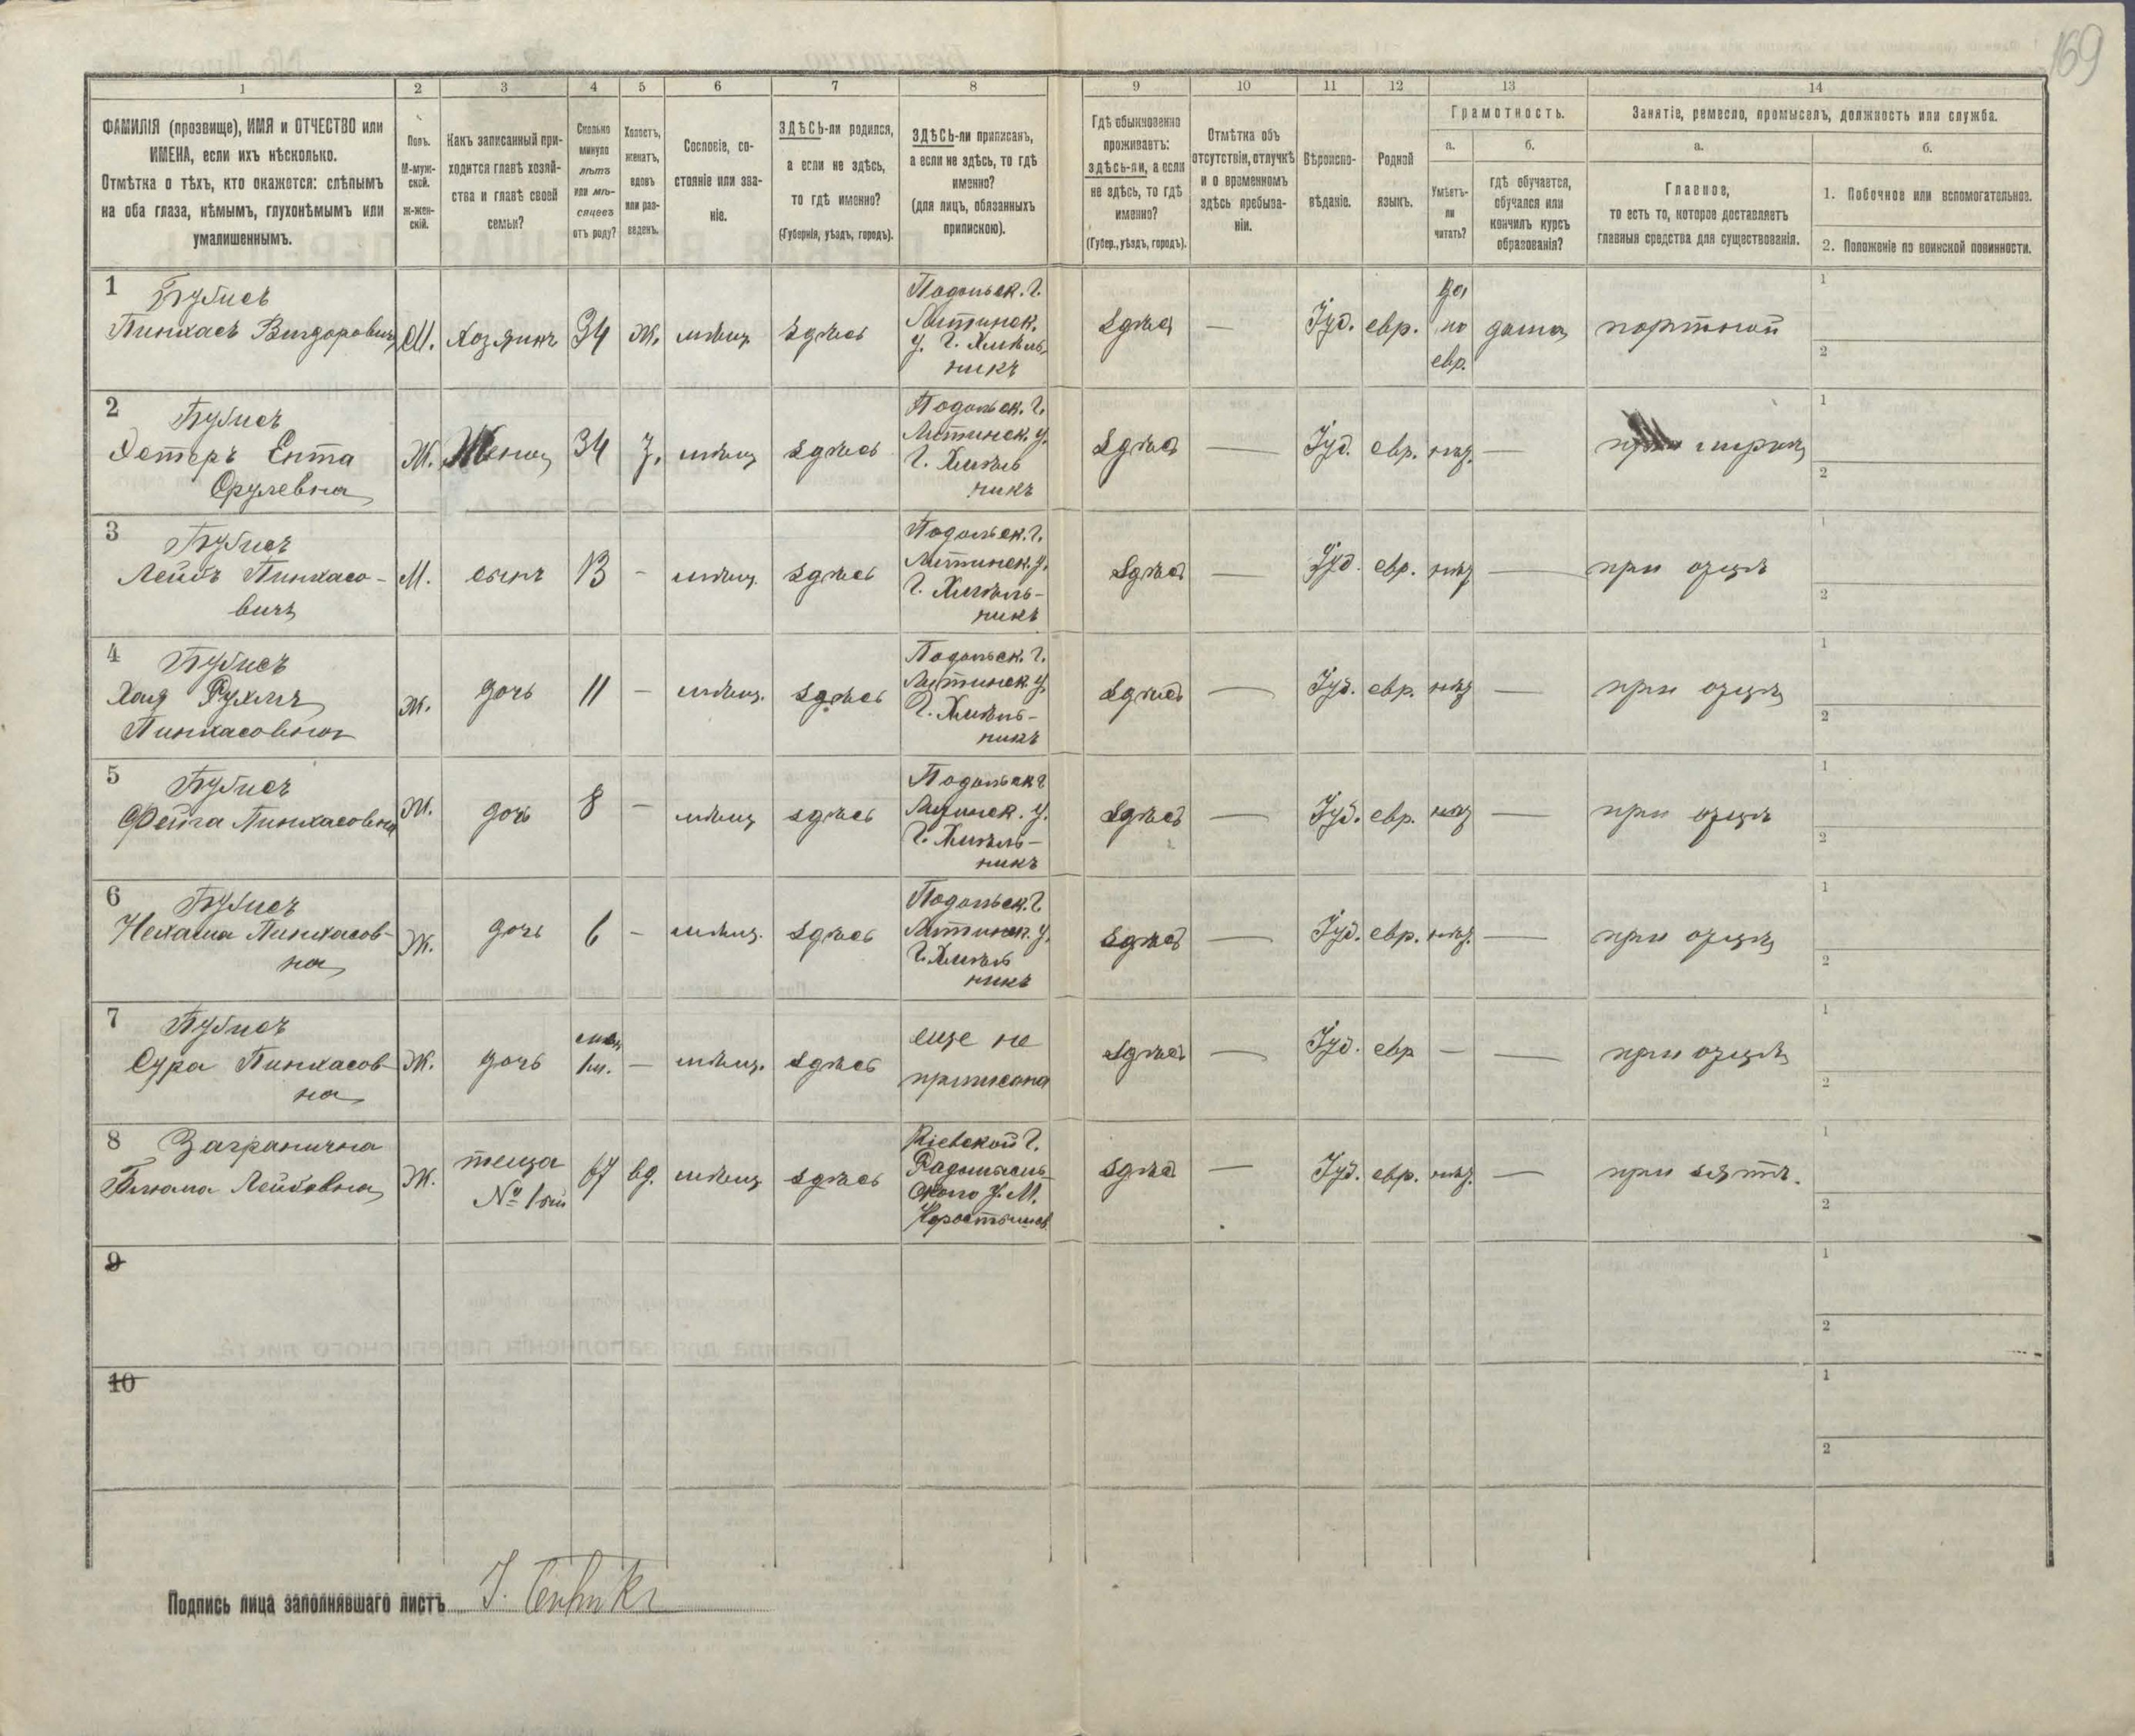 169
1 2 3 4 5 6 7 8 9 10 11 12 13 14
ФАМИЛІЯ (прозвище), ИМЯ и ОТЧЕСТВО или
ИМЕНА, если ихъ нѣсколько.
Отмѣтка о тѣхъ, кто окажется: слѣпымъ
на оба глаза, нѣмымъ, глухонѣмымъ или
умалишеннымъ.
Полъ.
М-муж-
ской.
ж-жен-
скій.
Какъ записанный при-
ходится главѣ хозяй-
ства и главѣ своей
семьи?
Сколько
минуло
лѣтъ
или мѣ-
сяцевъ
отъ роду?
Холостъ,
женатъ,
вдовъ
или раз-
веденъ.
Сословіе, со-
стояніе или зва-
ніе.
ЗДѢСЬ-ли родился,
а если не здѣсь,
то гдѣ именно?
(Губернія, уѣздъ, городъ).
ЗДѢСЬ-ли приписанъ,
а если не здѣсь, то гдѣ
именно?
(для лицъ, обязанныхъ
припискою).
Гдѣ обыкновенно
проживаетъ:
здѣсь-ли, а если
не здѣсь, то гдѣ
именно?
(Губер., уѣздъ, городъ).
Отмѣтка объ
отсутствіи, отлучкѣ
и о временномъ
здѣсь пребыва-
ніи.
Вѣроиспо-
вѣданіе.
Родной
языкъ.
Грамотность.
а.
Умѣетъ-
ли
читать?
б.
гдѣ обучается,
обучался или
кончилъ курсъ
образованія?
Занятіе, ремесло, промыселъ, должность или служба.
а.
Главное,
то есть то, которое доставляетъ
главныя средства для существованія.
б.
1. Побочное или вспомогательное.
2. Положеніе по воинской повинности.
1
Бубисъ
Пинхасъ
М.
хозяинъ
34
ж.
мѣщ.
здѣсь
Подольск. г.
Литинск.
у. г. Хмѣль
никъ
здѣсь
—
Іуд.
евр.
да,
по
евр.
дома
портной
1
2
2
Бубисъ
Эстеръ Ента
Срулевна
Ж.
Жена
34
з.
мѣщ.
здѣсь
Подольск. г.
Литинск. у.
г. Хмѣль
никъ
здѣсь
—
Іуд.
евр.
нѣт.
—
при мужѣ
1
2
3
Бубисъ
Лейбъ Пинхасо-
вичъ
М.
сынъ
13
-
мѣщ.
здѣсь
Подольск. г.
Литинск. у.
г. Хмѣль-
никъ
здѣсь
—
Іуд.
евр.
нѣт
—
при отцѣ
1
2
4
Бубисъ
Хая Рухля
Пинхасовна
Ж.
дочь
11
-
мѣщ.
здѣсь
Подольск. г.
Литинск. у.
г. Хмѣль-
никъ
здѣсь
—
Іуд.
евр.
нѣт
—
при отцѣ
1
2
5
Бубисъ
Фейга Пинхасовна
Ж.
дочь
8
-
мѣщ
здѣсь
Подольск г
Литинск. у.
г. Хмѣль-
никъ
здѣсь
—
Іуд.
евр.
нѣт
—
при отцѣ
1
2
6
Бубисъ
Нехама Пинхасов-
на
Ж.
дочь
6
-
мѣщ.
здѣсь
Подольск. г.
Литинск. у.
г. Хмѣль
никъ
здѣсь
—
Іуд.
евр.
нѣт.
—
при отцѣ
1
2
7
Бубисъ
Сура Пинхасов-
на
Ж.
дочь
1м.
—
мѣщ.
здѣсь
еще не
приписана
здѣсь
—
Іуд.
евр
—
—
при отцѣ
1
2
8
Загранична
Блюма Лейбовна
Ж.
теща
№ 1ый
67
вд.
мѣщ.
здѣсь
Кіевской г.
Радомысль-
скаго у. М.
Коростышев
здѣсь
—
Іуд.
евр.
нѣт.
—
при зятѣ.
1
2
9
1
2
10
1
2
Подпись лица заполнявшаго листъ